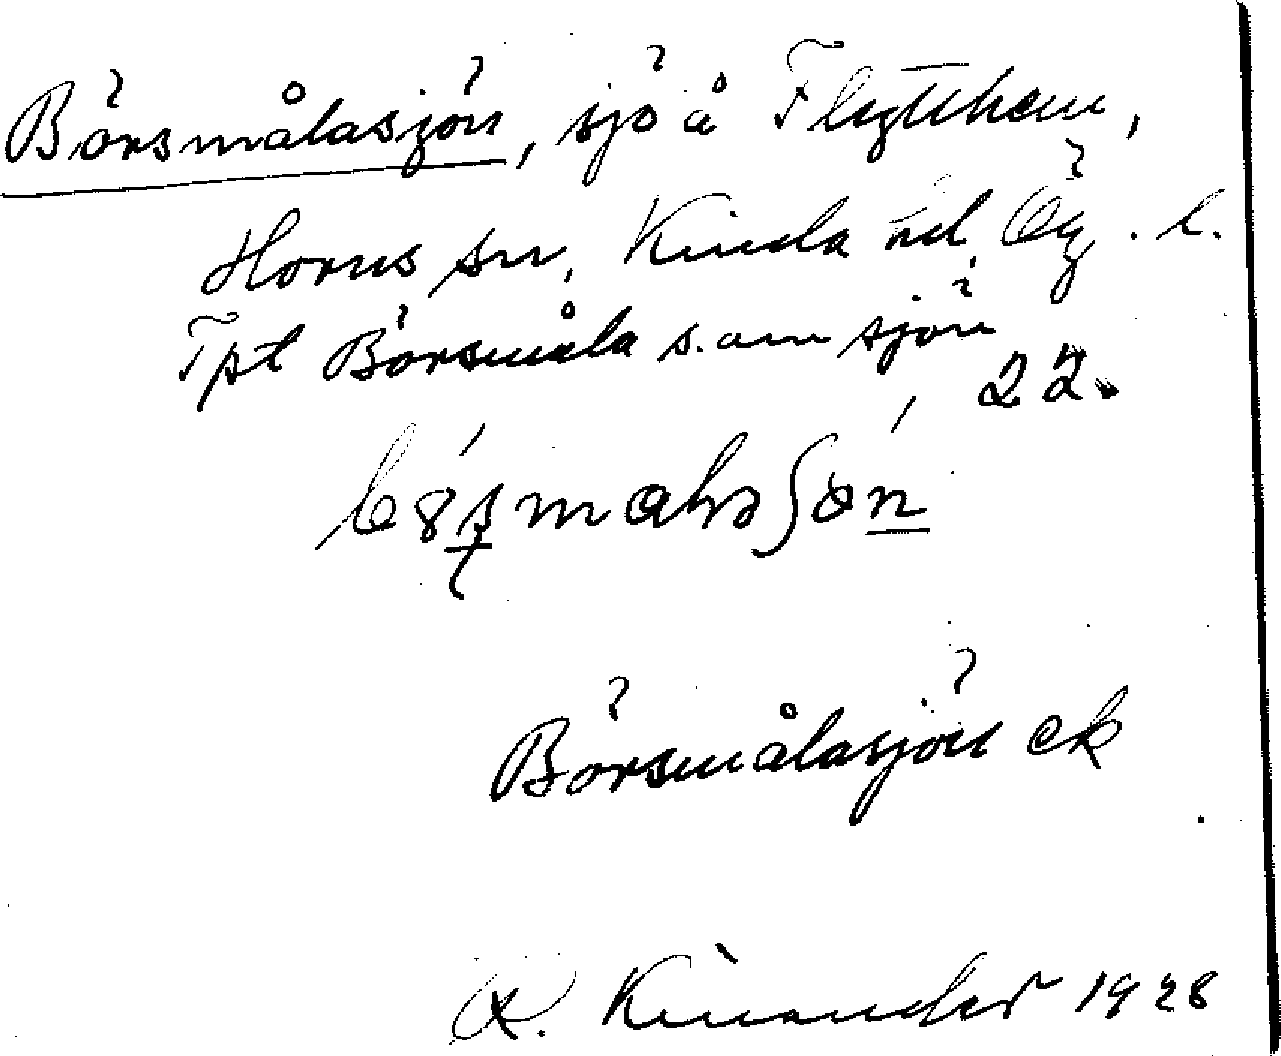 Börsmålasjön, sjö å Flytthem,
Horns sn, Kinda hd, Ög. l.
Tpt Börsmåla s. om sjön
22.
Börsmålasjön ek
K. Kinander 1928